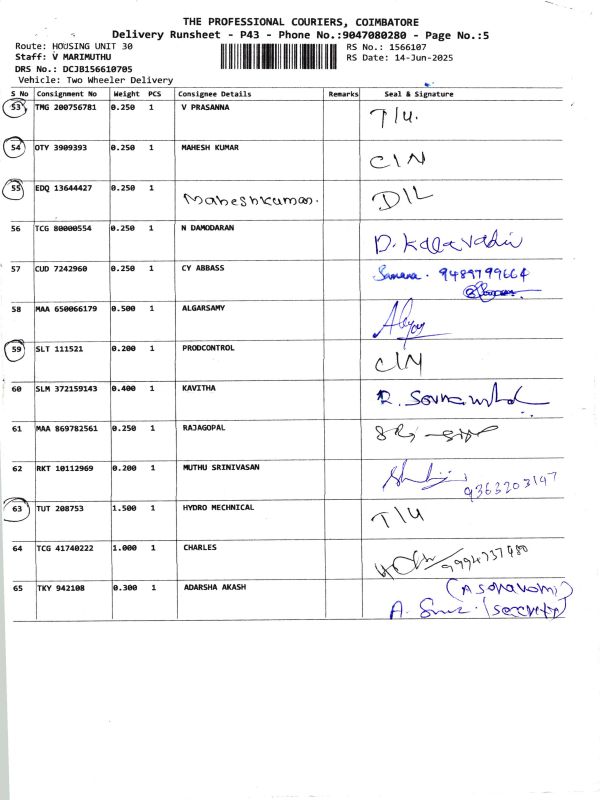 THE PROFESSIONAL COURIERS, COIMBATORE
Delivery Runsheet - P43 - Phone No.:9047080280 - Page No.:5
Route: HOUSING UNIT 30 RS No.: 1566107
Staff: V MARIMUTHU RS Date: 14-Jun-2025
DRS No.: DCJB156610705
Vehicle: Two Wheeler Delivery
S No Consignment No Weight PCS Consignee Details Remarks Seal & Signature
53 TMG 200756781 0.250 1 V PRASANNA T/U.
54 OTY 3909393 0.250 1 MAHESH KUMAR C/N
55 EDQ 13644427 0.250 1 Maheshkumar. D/L
56 TCG 80000554 0.250 1 N DAMODARAN D. Kalavadir
57 CUD 7242960 0.250 1 CY ABBASS 9489799664
58 MAA 650066179 0.500 1 ALGARSAMY
59 SLT 111521 0.200 1 PRODCONTROL C/N
60 SLM 372159143 0.400 1 KAVITHA
61 MAA 869782561 0.250 1 RAJAGOPAL
62 RKT 10112969 0.200 1 MUTHU SRINIVASAN 9363203197
63 TUT 208753 1.500 1 HYDRO MECHNICAL T/U
64 TCG 41740222 1.000 1 CHARLES 9994737480
65 TKY 942108 0.300 1 ADARSHA AKASH